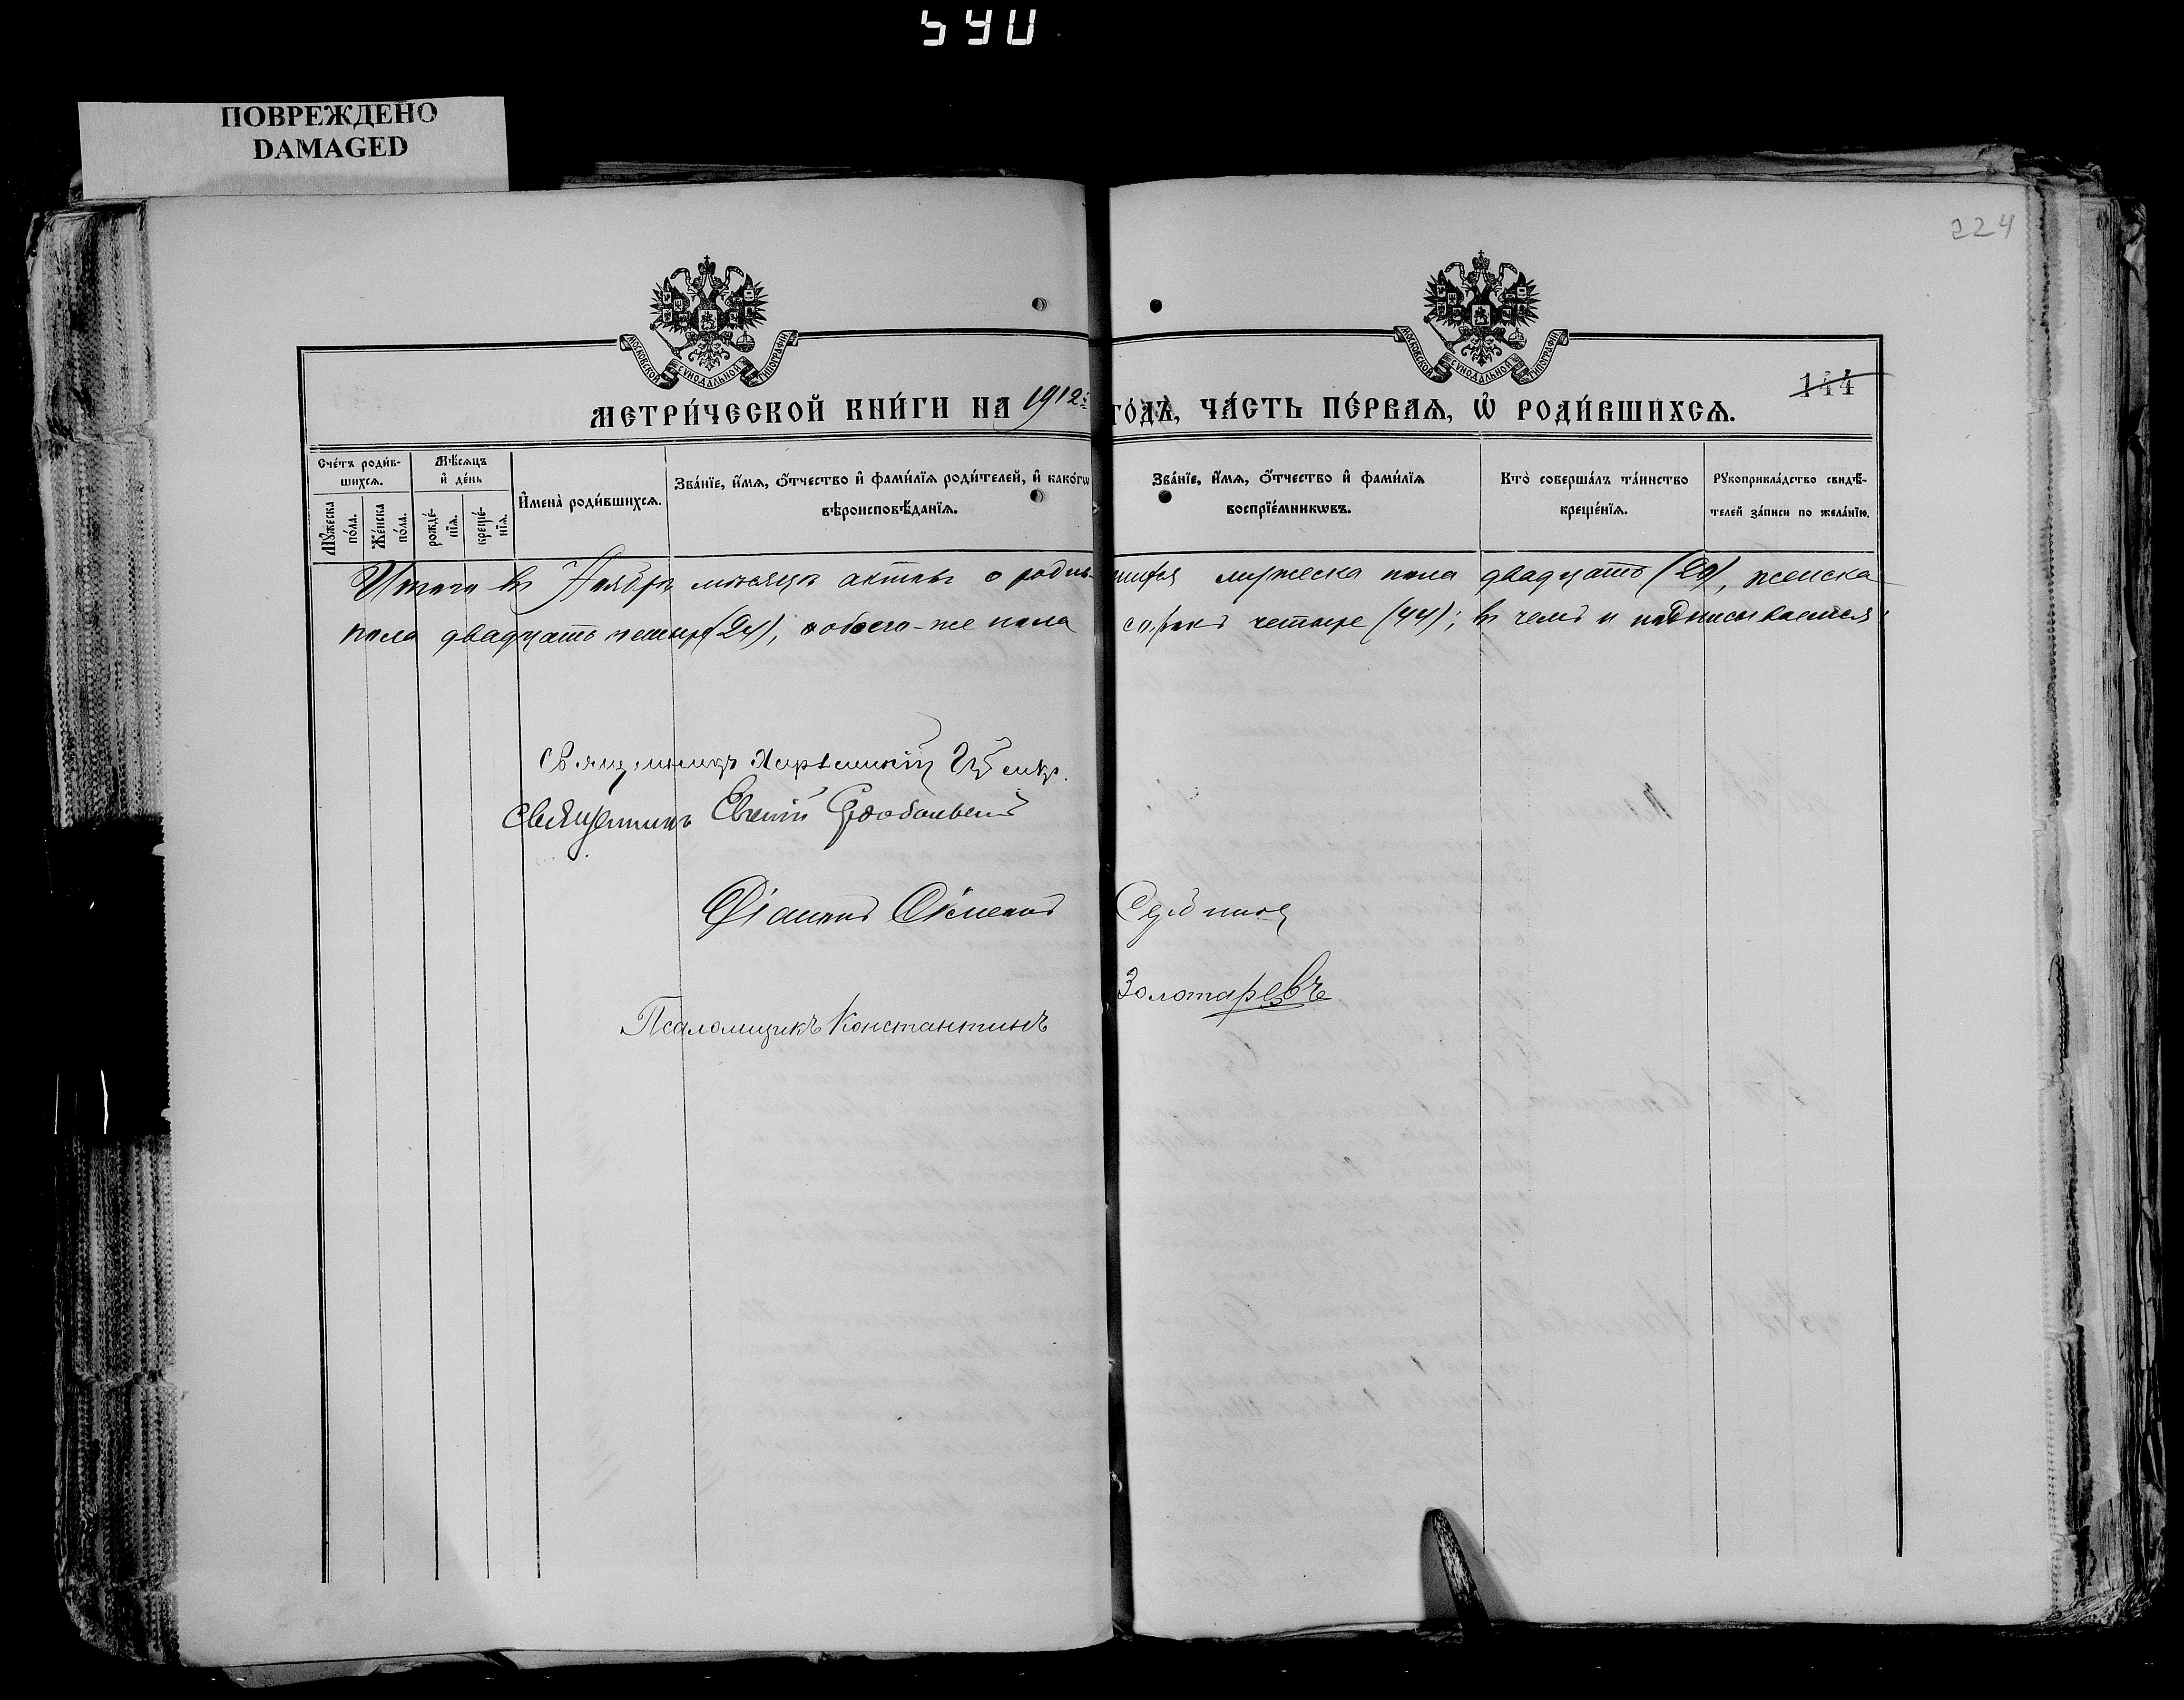 540
ПОВРЕЖДЕНО
DAMAGED
224
МОСКОВСКОЙ СѴНОДАЛЬНОЙ ТИПОГРАФІИ
МОСКОВСКОЙ СѴНОДАЛЬНОЙ ТИПОГРАФІИ
144
МЕТРИ́ЧЕСКОЙ КНИ́ГИ НА 1912 ГО́ДЪ, ЧА́СТЬ ПЕ́РВАЯ, Ѡ҆ РОДИ́ВШИХСЯ.
Сче́тъ роди́в-
шихся.
Мѣ́сяцъ
и҆ де́нь
Мꙋ́жеска
по́ла.
Же́нска
по́ла.
рожде́-
нїя.
креще́-
нїя.
И҆мена̀ роди́вшихся.
Зва́нїе, и҆́мя, ѻ҆́тчество и҆ фами́лїя роди́телей, и҆ како́гѡ
вѣроисповѣ́данїя.
Зва́нїе, и҆́мя, ѻ҆́тчество и҆ фами́лїя
воспрїе́мникѡвъ.
Кто̀ соверша́лъ та́инство
креще́нїя.
Рꙋкоприкла́дство свидѣ́-
телей за́писи по жела́нїю.
Итого въ Ноябрѣ мѣсяцѣ актовъ о родив-шихся мужеска пола двадцать (20), женска
пола двадцать четыре (24), а обоего-же пола сорокъ четыре (44); въ чемъ и подписываемся:
Священникъ
Священникъ Евгеній
Діаконъ Сѵмеонъ
Псаломщикъ Константинъ Золотаревъ